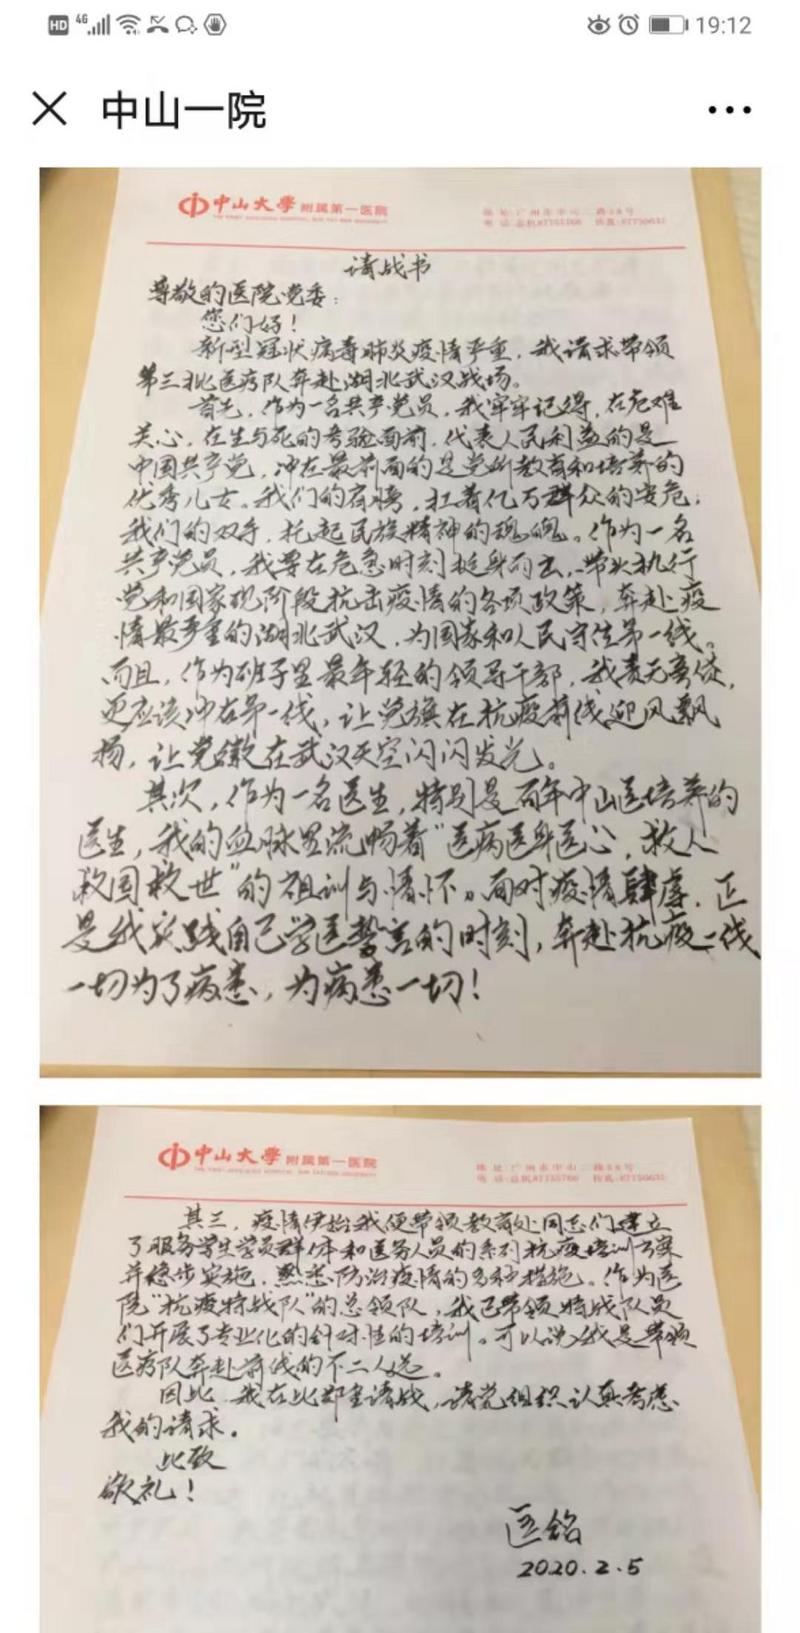 HD 4G 19:12
中山一院
中山大学附属第一医院
地址:广州市中山二路58号
请战书
尊敬的医院党委:
您们好!
新型冠状病毒肺炎疫情严重,我请求带领
第三批医疗队奔赴湖北武汉战场。
首先,作为一名共产党员,我牢牢记得,在危难
关心,在生与死的考验面前,代表人民利益的是
中国共产党,冲在最前面的是党所教育和培养的
优秀儿女。我们的肩膀,扛着亿万群众的安危;
我们的双手,托起民族精神的魂魄。作为一名
共产党员,我要在危急时刻挺身而出,带头执行
党和国家现阶段抗击疫情的各项政策,奔赴疫
情最严重的湖北武汉,为国家和人民守住第一线。
而且,作为班子里最年轻的领导干部,我责无旁贷,
更应该冲在第一线,让党旗在抗疫前线迎风飘
扬,让党徽在武汉天空闪闪发光。
其次,作为一名医生,特别是百年中山医培养的
医生,我的血脉里流畅着"医病医身医心,救人
救国救世"的祖训与情怀。面对疫情肆虐,正
是我实践自己学医誓言的时刻,奔赴抗疫一线
一切为了病患,为病患一切!
中山大学附属第一医院
地址:广州市中山二路58号
其三,疫情伊始我便带领教育处同志们建立
了服务学生学员群体和医务人员的系列抗疫培训方案
并稳步实施,熟悉防治疫情的各种措施。作为医
院"抗疫特战队"的总领队,我已带领特战队员
们开展了专业化的针对性的培训。可以说,我是带领
医疗队奔赴前线的不二人选。
因此,我在此郑重请战,请党组织认真考虑
我的请求。
此致
敬礼!
匡铭
2020.2.5